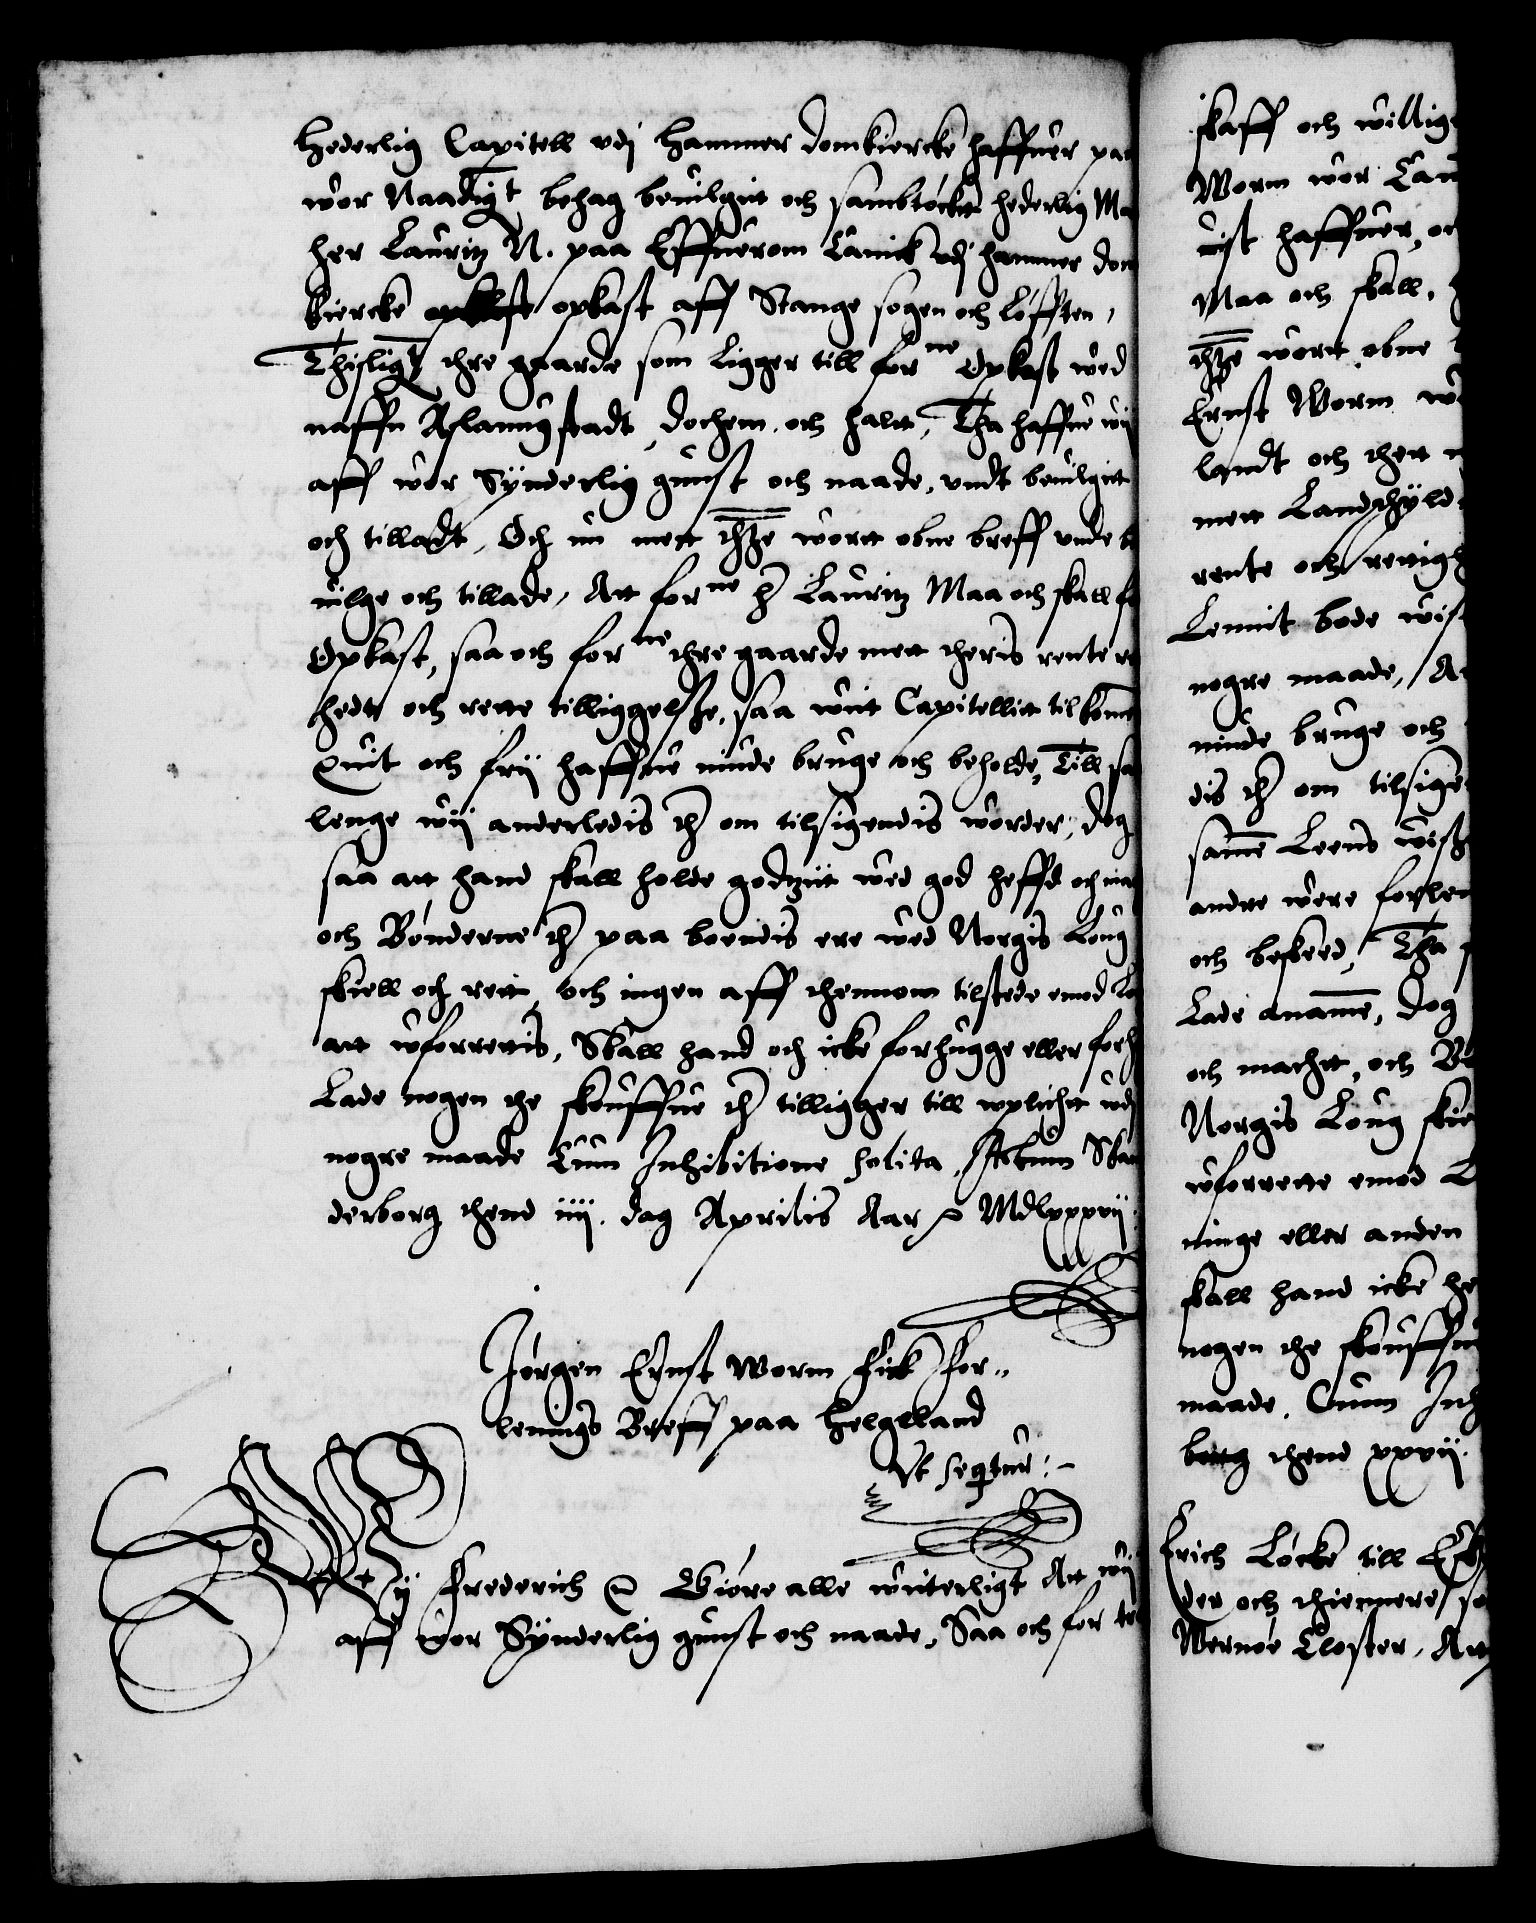 Hederlig Capitell vdj Hammer domkiercke haffuer paa
wor Naadigt behag beuilgit och sambtöckt hederlig Ma
her Lauritz N. paa Effuerom Canick vdj hammer dom
kiercke opkast aff Stange sogen och Löfften,
Thisligt thre gaarde som Ligger till forne Opkast wed
naffn Aslaugstadt, Dochem, och halt, Tha haffue wij
aff wor Synderlig gunst och naade, vndt beuilgit
och tilladt, Och nu mett thtte wort obne breff vnde be
uilge och tillade, Att forne her Lauritz Maa och skall fo
Opkast, saa och forne thre gaarde mett theris rente re
hedt och rette tilliggelsse, saa wiit Capitellit tilkomme
Quit och frij haffue niude bruge och beholde, Till saa
lenge wij anderledis ther om tilsigendis worder, Dog
saa att hand skall holde godzit wed god heffd och ma
och Bönderne ther paa boendis ere wed Norgis Loug
skiell och rett, och ingen aff thennom tilstede emod Lo
att wforrettis, Skall hand och icke forhugge eller forh
Lade nogen the skouffue ther tilligger till wplicht vdj
nogre maade Cum Inhibitione solita, Actum Skan
derborg thend iiij. dag Aprilis Aar &c Mdlxxxvij.
Jörgen Ernst Worm Fick For„
lenings Breff paa Helgeland
Vt sequtur:-
Wij Frederich &c Giöre alle witterligt Att wij
aff wor Synderlig gunst och naade, Saa och for tro
skaff och willig
Worm wor Can
uist haffuer, oc
Maa och skall,
thtte wort obne
Ernst Worm w
landt och thett
mett Landschyld
rente och rettigh
Lennit bode wist
nogre maade, At
niude bruge och
dis ther om tilsige
samme Leens wiss
andre were forlen
och beskeed, Tha
Lade anamme, Dog
och machtt, och Bö
Norgis Loug skie
wforrette emod L
ninge eller anden
skall hand icke he
nogen the skouffue
maade, Cum Inh
borg thend xxvij.
Erich Löcke till Esk
der och thiennere so
Wernöe Closter, Att